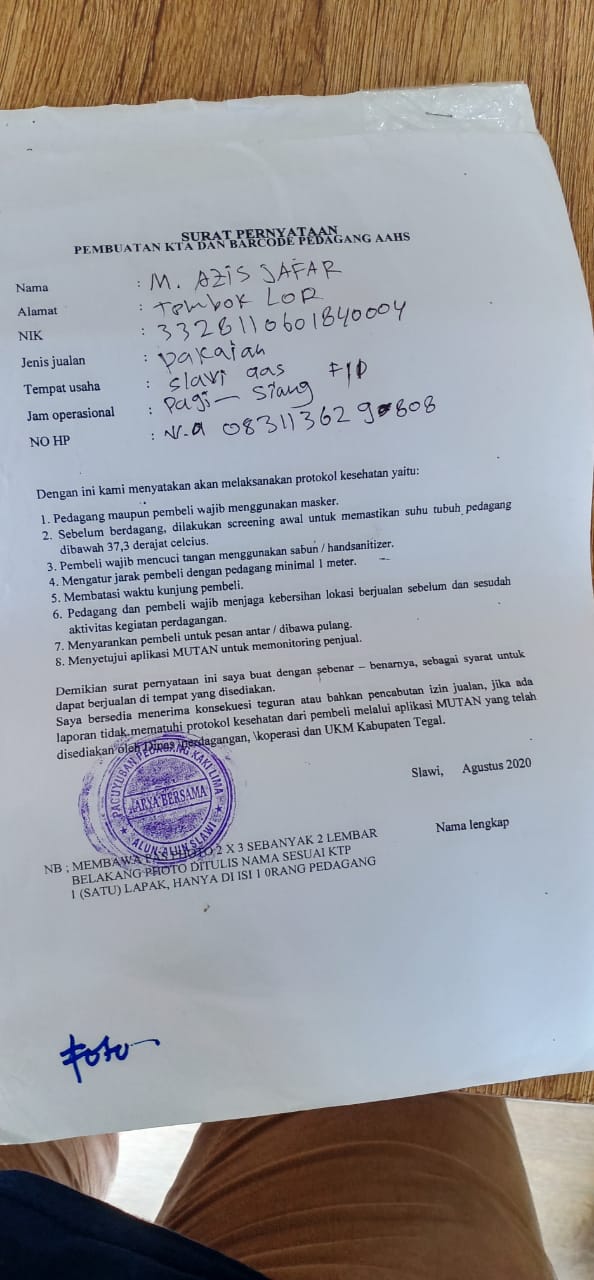 SURAT PERNYATAAN
PEMBUATAN KTA DAN BARCODE PEDAGANG AAHS
Nama : M. AZIS JAFAR
Alamat : Tembok LOR
NIK : 3328110601840004
Jenis jualan : pakaian
Tempat usaha : slawi aas
Jam operasional : Pagi – Siang FID
NO HP : W.a 083113629 808
Dengan ini kami menyatakan akan melaksanakan protokol kesehatan yaitu:
1. Pedagang maupun pembeli wajib menggunakan masker.
2. Sebelum berdagang, dilakukan screening awal untuk memastikan suhu tubuh pedagang
dibawah 37,3 derajat celcius.
3. Pembeli wajib mencuci tangan menggunakan sabun / handsanitizer.
4. Mengatur jarak pembeli dengan pedagang minimal 1 meter.
5. Membatasi waktu kunjung pembeli.
6. Pedagang dan pembeli wajib menjaga kebersihan lokasi berjualan sebelum dan sesudah
aktivitas kegiatan perdagangan.
7. Menyarankan pembeli untuk pesan antar / dibawa pulang.
8. Menyetujui aplikasi MUTAN untuk memonitoring penjual.
Demikian surat pernyataan ini saya buat dengan sebenar – benarnya, sebagai syarat untuk
dapat berjualan di tempat yang disediakan.
Saya bersedia menerima konsekuesi teguran atau bahkan pencabutan izin jualan, jika ada
laporan tidak mematuhi protokol kesehatan dari pembeli melalui aplikasi MUTAN yang telah
disediakan oleh Dinas perdagangan, \koperasi dan UKM Kabupaten Tegal.
Slawi, Agustus 2020
PAGUYUBAN PEDAGANG KAKI LIMA
KARYA BERSAMA
ALUN-ALUN SLAWI
Nama lengkap
NB ; MEMBAWA PAS PHOTO 2 X 3 SEBANYAK 2 LEMBAR
BELAKANG PHOTO DITULIS NAMA SESUAI KTP
1 (SATU) LAPAK, HANYA DI ISI 1 0RANG PEDAGANG
Foto